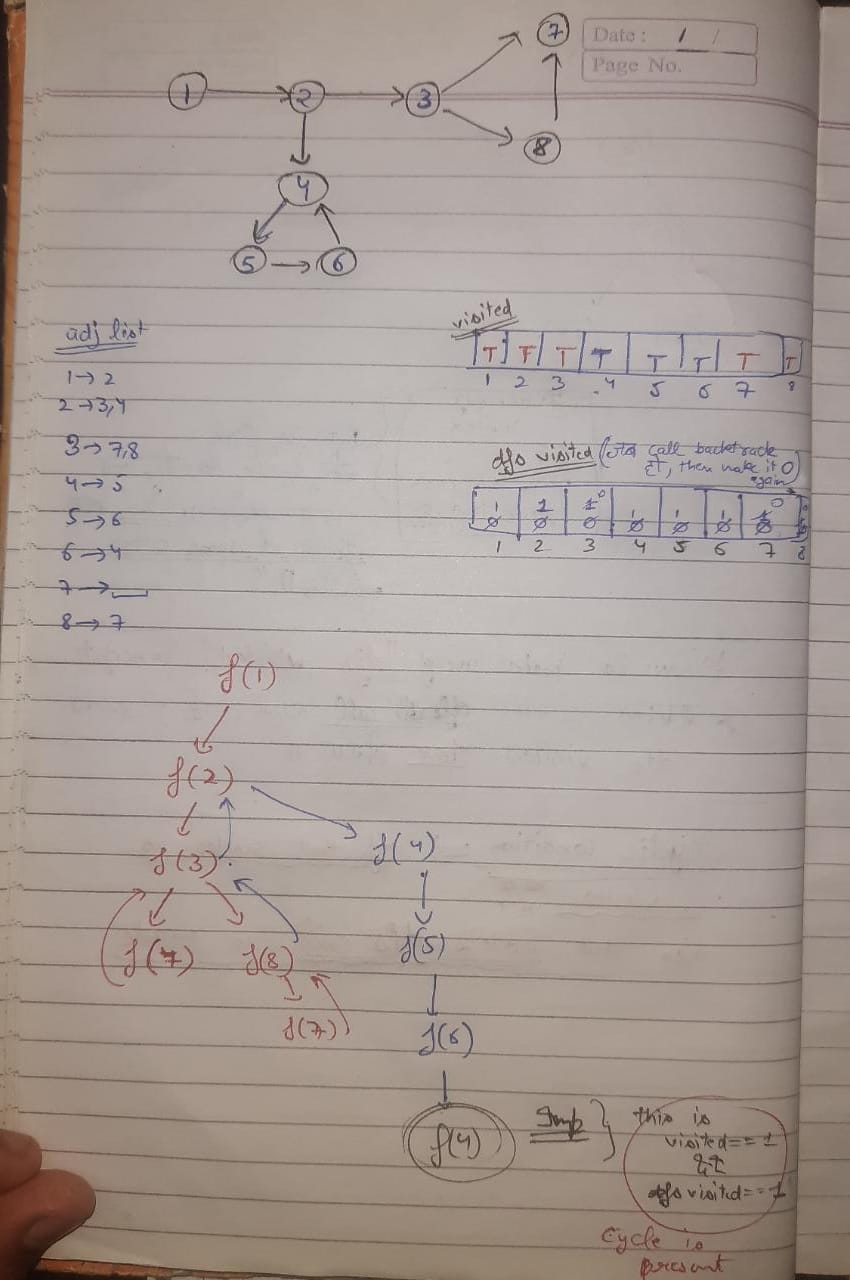 Date : 1 /
Page No.
1 2 3 7
8
4
5 6
adj list
1→2
2→3,4
3→7,8
4→5
5→6
6→4
7→
8→7
visited
T F T T T T T T
1 2 3 4 5 6 7 8
dfs visited ( call backtrack
, then make it 0
again)
1 1 1 0 1 1 1 1 0 0
0 0 0 0 0 0 0
1 2 3 4 5 6 7 8
f(1)
f(2)
f(3) f(4)
f(7) f(8) f(5)
f(7) f(6)
f(4) Imp } this is
visited==1
&&
dfs visited==1
Cycle is
present